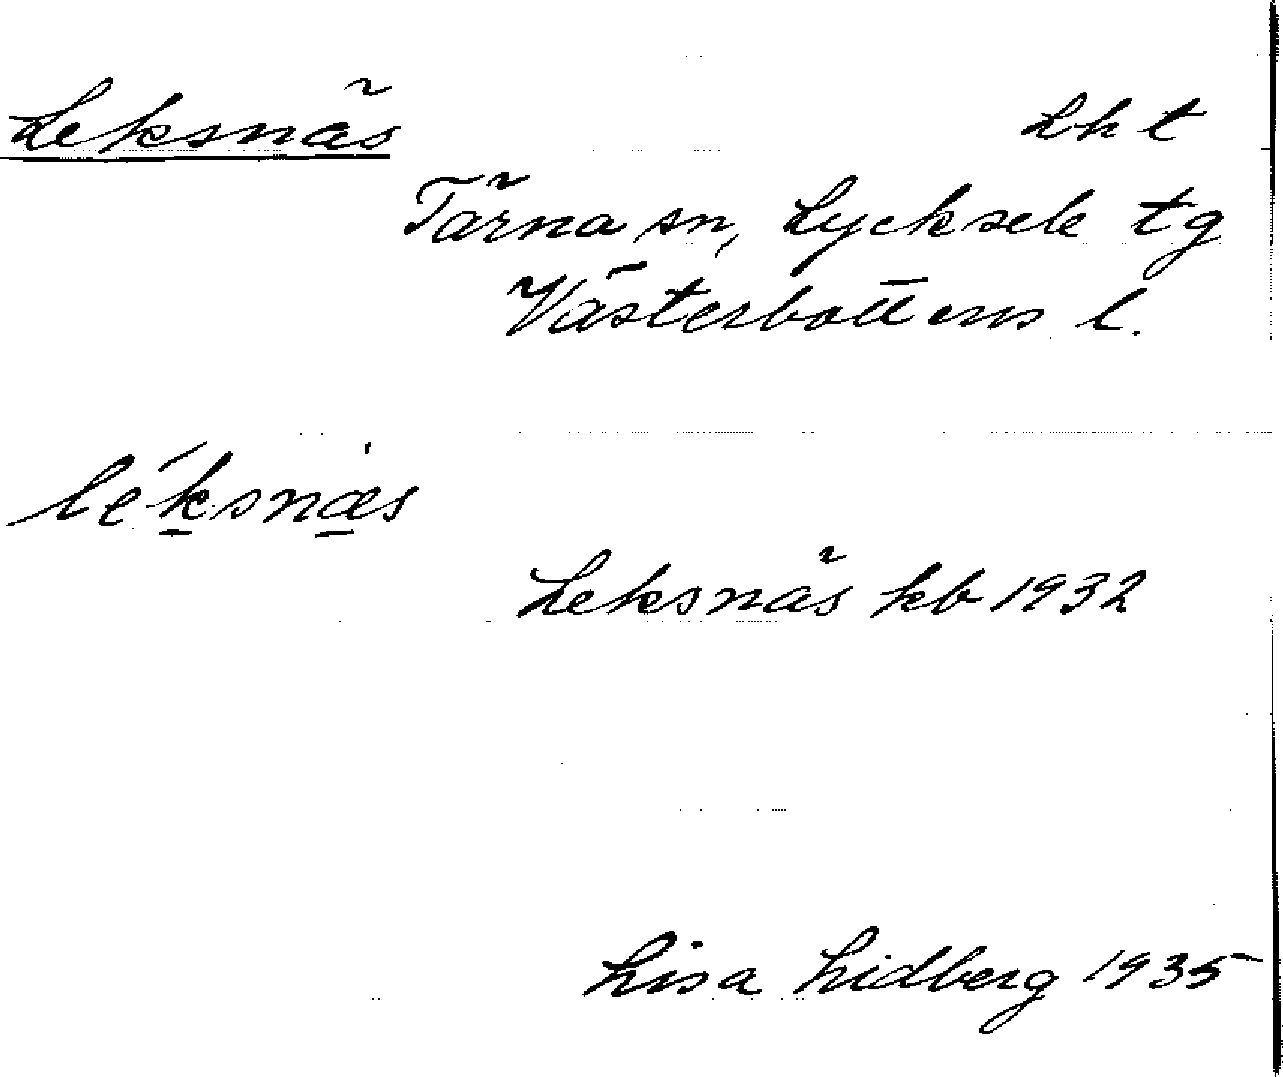 Leksnäs
Lht
Tärna sn, Lycksele tg
Västerbottens l.
léksnæs
Leksnäs kb 1932
Lisa Lidberg 1935